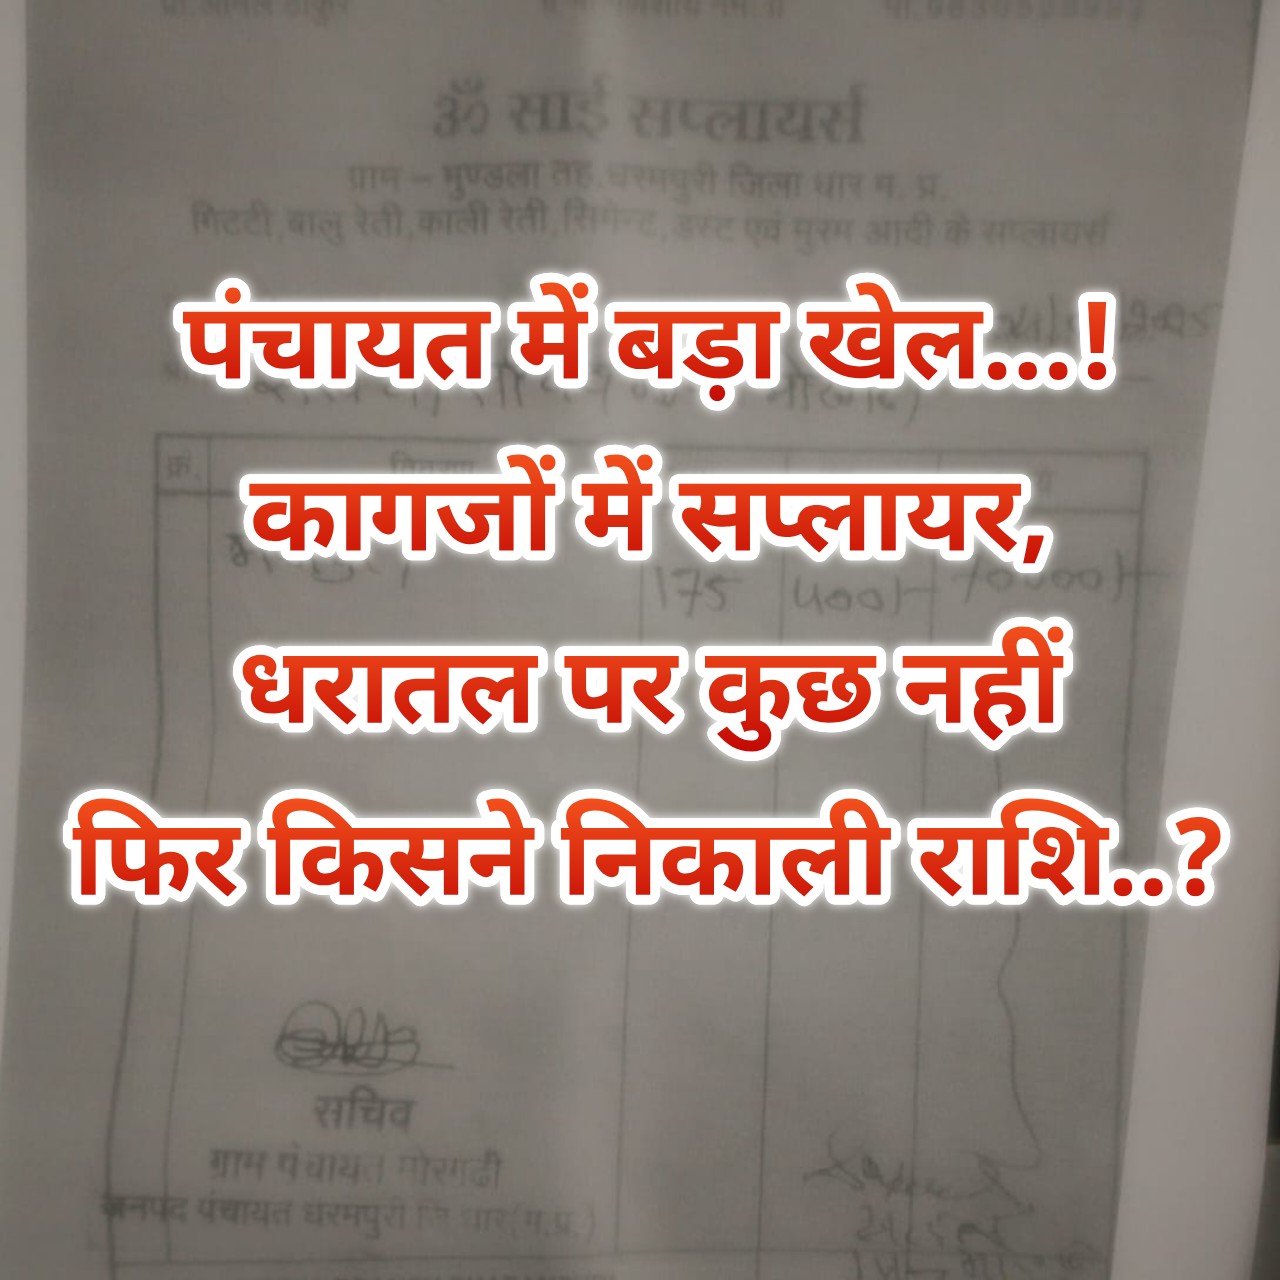 ॐ साई सप्लायर्स
ग्राम – मुण्डला तह.धरमपुरी जिला धार म. प्र.
गिटटी,बालु रेती,काली रेती,सिमेन्ट,डस्ट एवं मुरम आदी के सप्लायर्स
पंचायत में बड़ा खेल...!
क्रं.
कागजों में सप्लायर,
175 400/- 70000/-
धरातल पर कुछ नहीं
फिर किसने निकाली राशि..?
सचिव
ग्राम पंचायत
जनपद पंचायत धरमपुरी जि धार(म.प्र.)